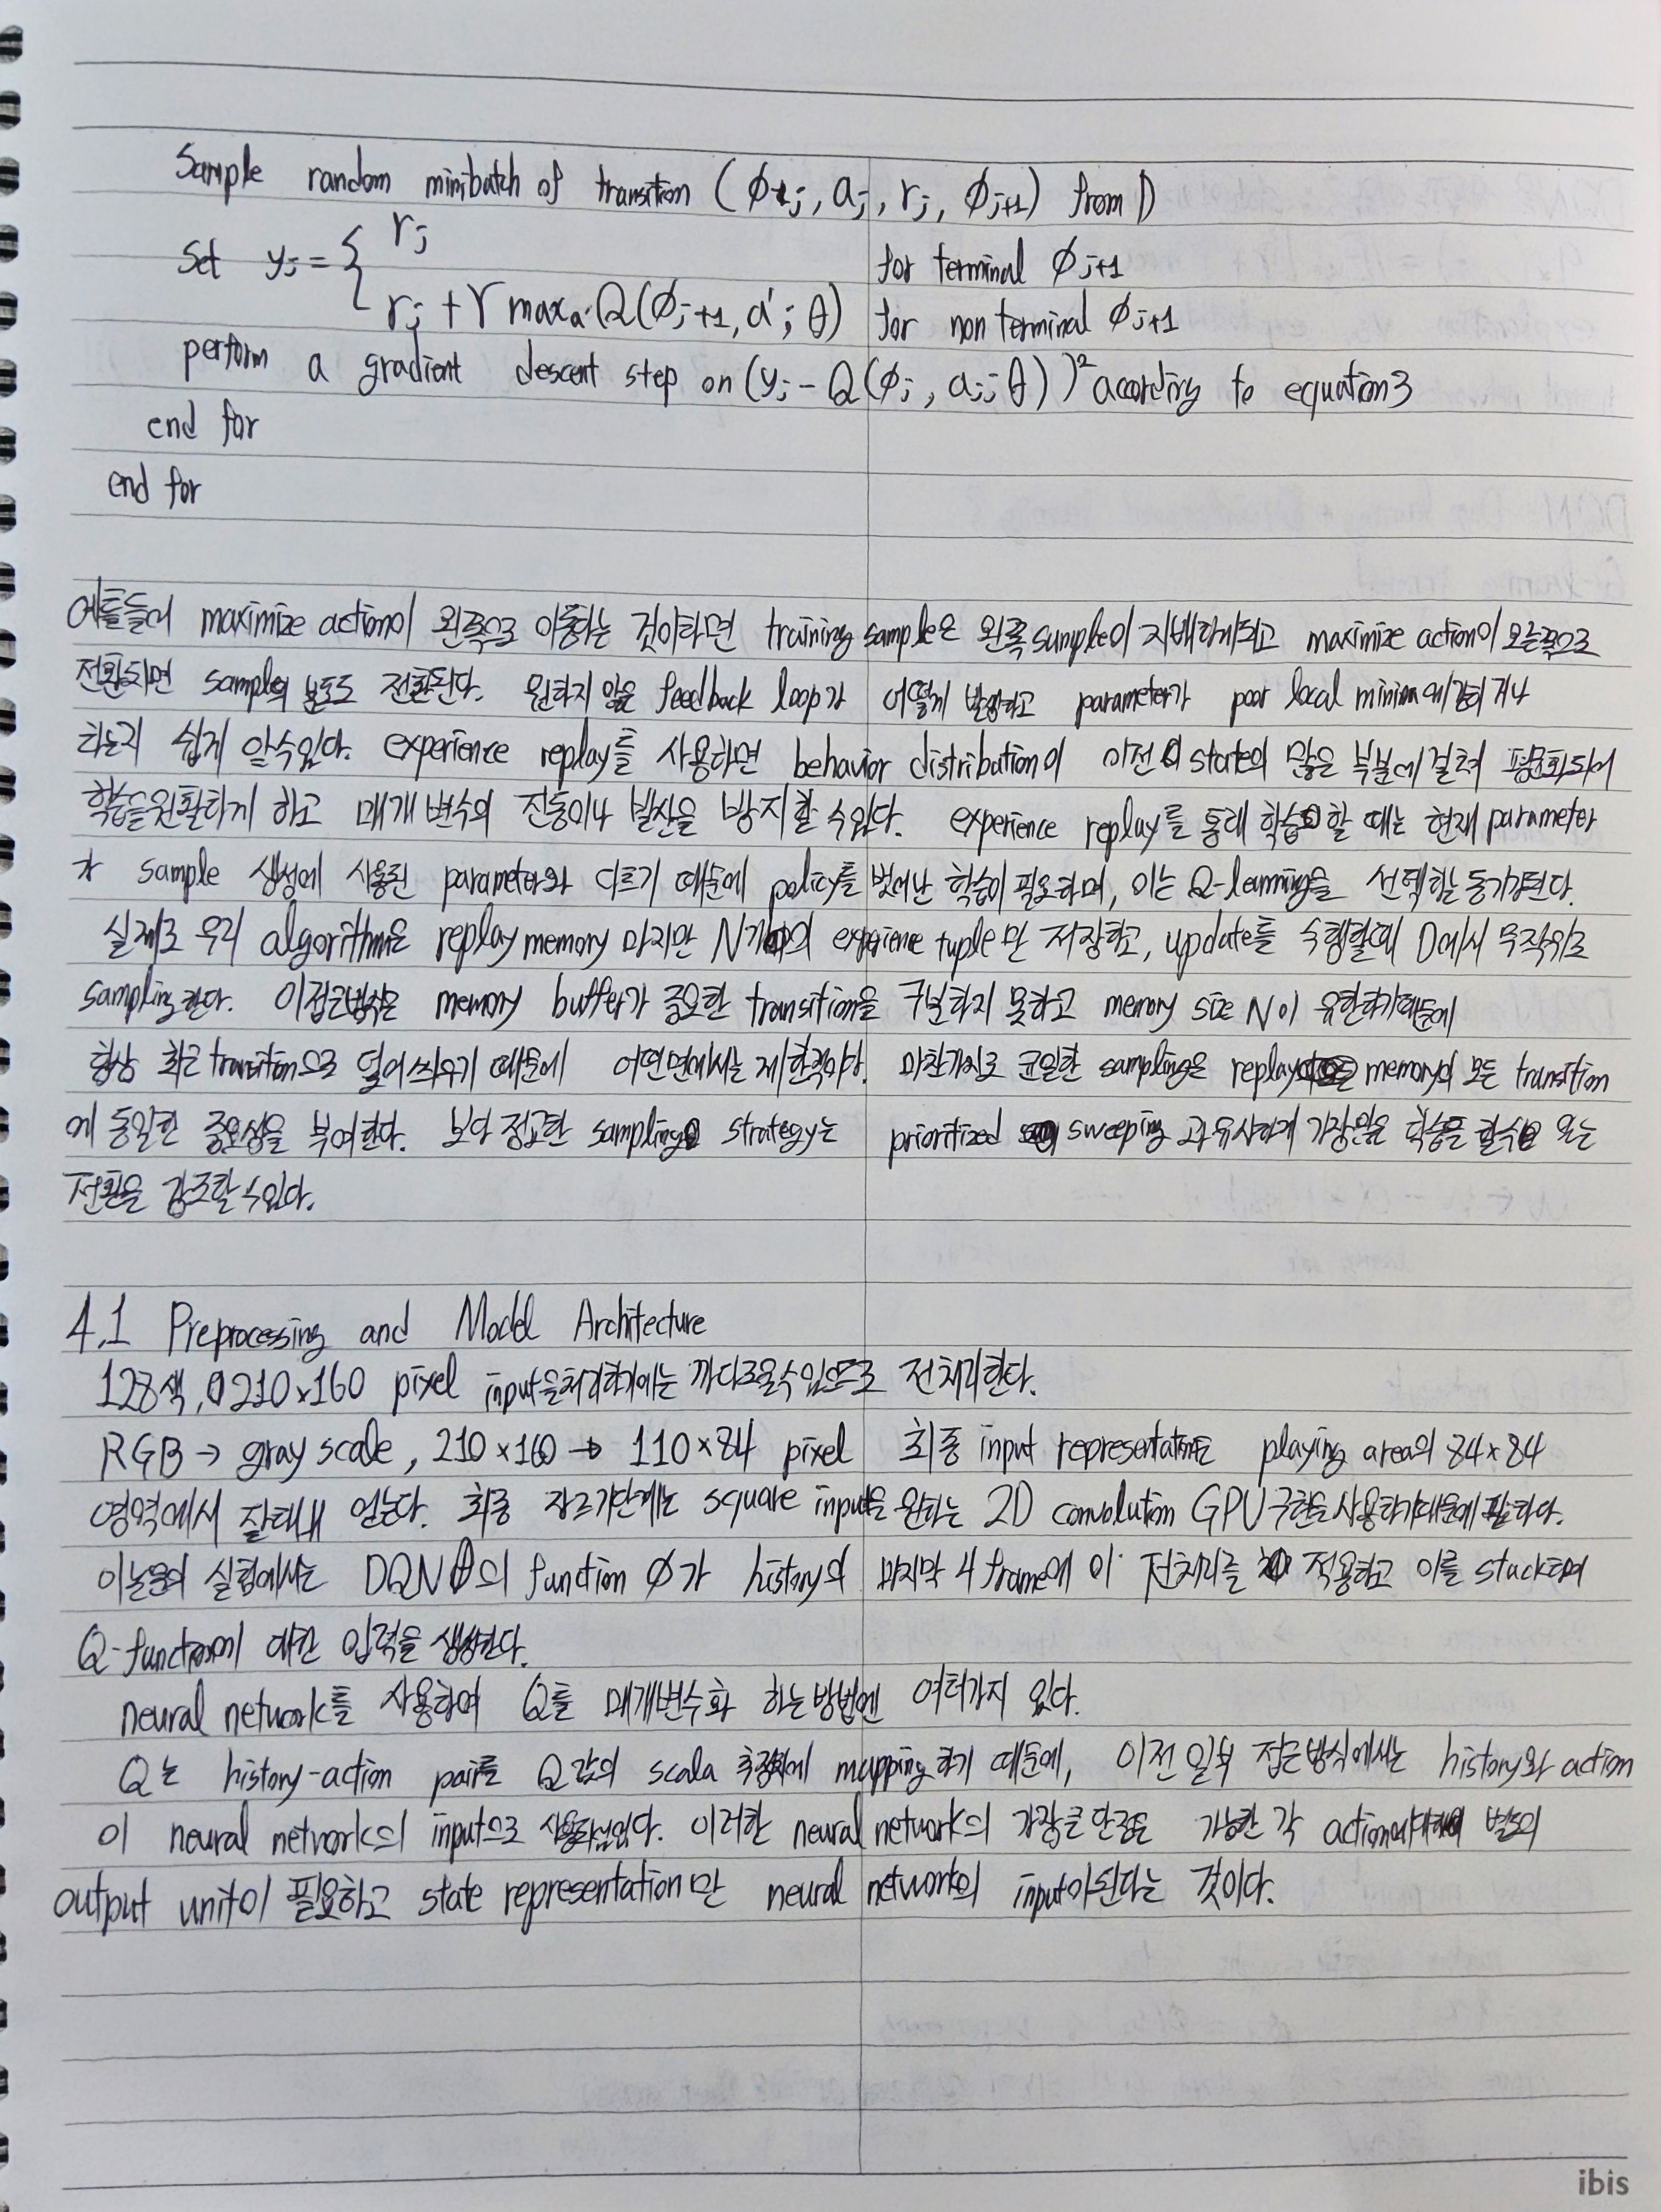 Sample random minibatch of transition (ϕj, aj, rj, ϕj+1) from D
Set yj = { rj for terminal ϕj+1
rj + γ maxa' Q(ϕj+1, a'; θ) for non terminal ϕj+1
perform a gradient descent step on (yj - Q(ϕj, aj; θ))² according to equation 3
end for
end for
예를들어 maximize action이 왼쪽으로 이동하는 것이라면 training sample은 왼쪽 sample이 지배하게되고 maximize action이 오른쪽으로
전환되면 sample의 분포도 전환된다. 원하지 않은 feedback loop가 어떻게 발생하고 parameter가 poor local minima에 갇히거나
하는지 쉽게 알 수 있다. experience replay를 사용하면 behavior distribution이 이전의 state의 많은 부분에 걸쳐 평균화되어
학습을 원활하게 하고 매개 변수의 진동이나 발산을 방지할 수 있다. experience replay를 통해 학습할 때는 현재 parameter
가 sample 생성에 사용된 parameter와 다르기 때문에 policy를 벗어난 학습이 필요하며, 이는 Q-learning을 선택하는 동기가된다.
실제로 우리 algorithm은 replay memory 마지만 N개의 experience tuple만 저장하고, update를 수행할때 D에서 무작위로
sampling한다. 이접근방식은 memory buffer가 중요한 transition을 구분하지 못하고 memory size N이 유한하기때문에
항상 최근 transition으로 덮어 씌우기 때문에 어떤면에서는 제한적이다. 마찬가지로 균일한 sampling은 replay memory의 모든 transition
에 동일한 중요성을 부여한다. 보다 정교한 sampling strategy는 prioritized sweeping 과 유사하게 가장많은 학습을 할수 있는
전환을 강조할 수있다.
4.1 Preprocessing and Model Architecture
128색, 210×160 pixel input을처리하기에는 까다로울수있으므로 전처리한다.
RGB → gray scale, 210×160 → 110×84 pixel 최종 input representation은 playing area의 84×84
영역에서 잘래내 얻는다. 최종 자르기단계는 square input을 원하는 2D convolution GPU구현을사용하기때문에 필요하다.
이논문의 실험에서는 DQN의 function ϕ가 history의 마지막 4 frame에 이 전처리를 적용하고 이를 stack하여
Q-function에 대한 입력을 생성한다.
neural network를 사용하여 Q를 매개변수화 하는방법엔 여러가지 있다.
Q는 history-action pair를 Q값의 scala 추정치에 mapping하기 때문에, 이전 일부 접근방식에서는 history와 action
이 neural network의 input으로 사용되었었다. 이러한 neural network의 가장큰 단점은 가능한 각 action에대해 별도의
output unit이 필요하고 state representation만 neural network의 input이된다는 것이다.
ibis